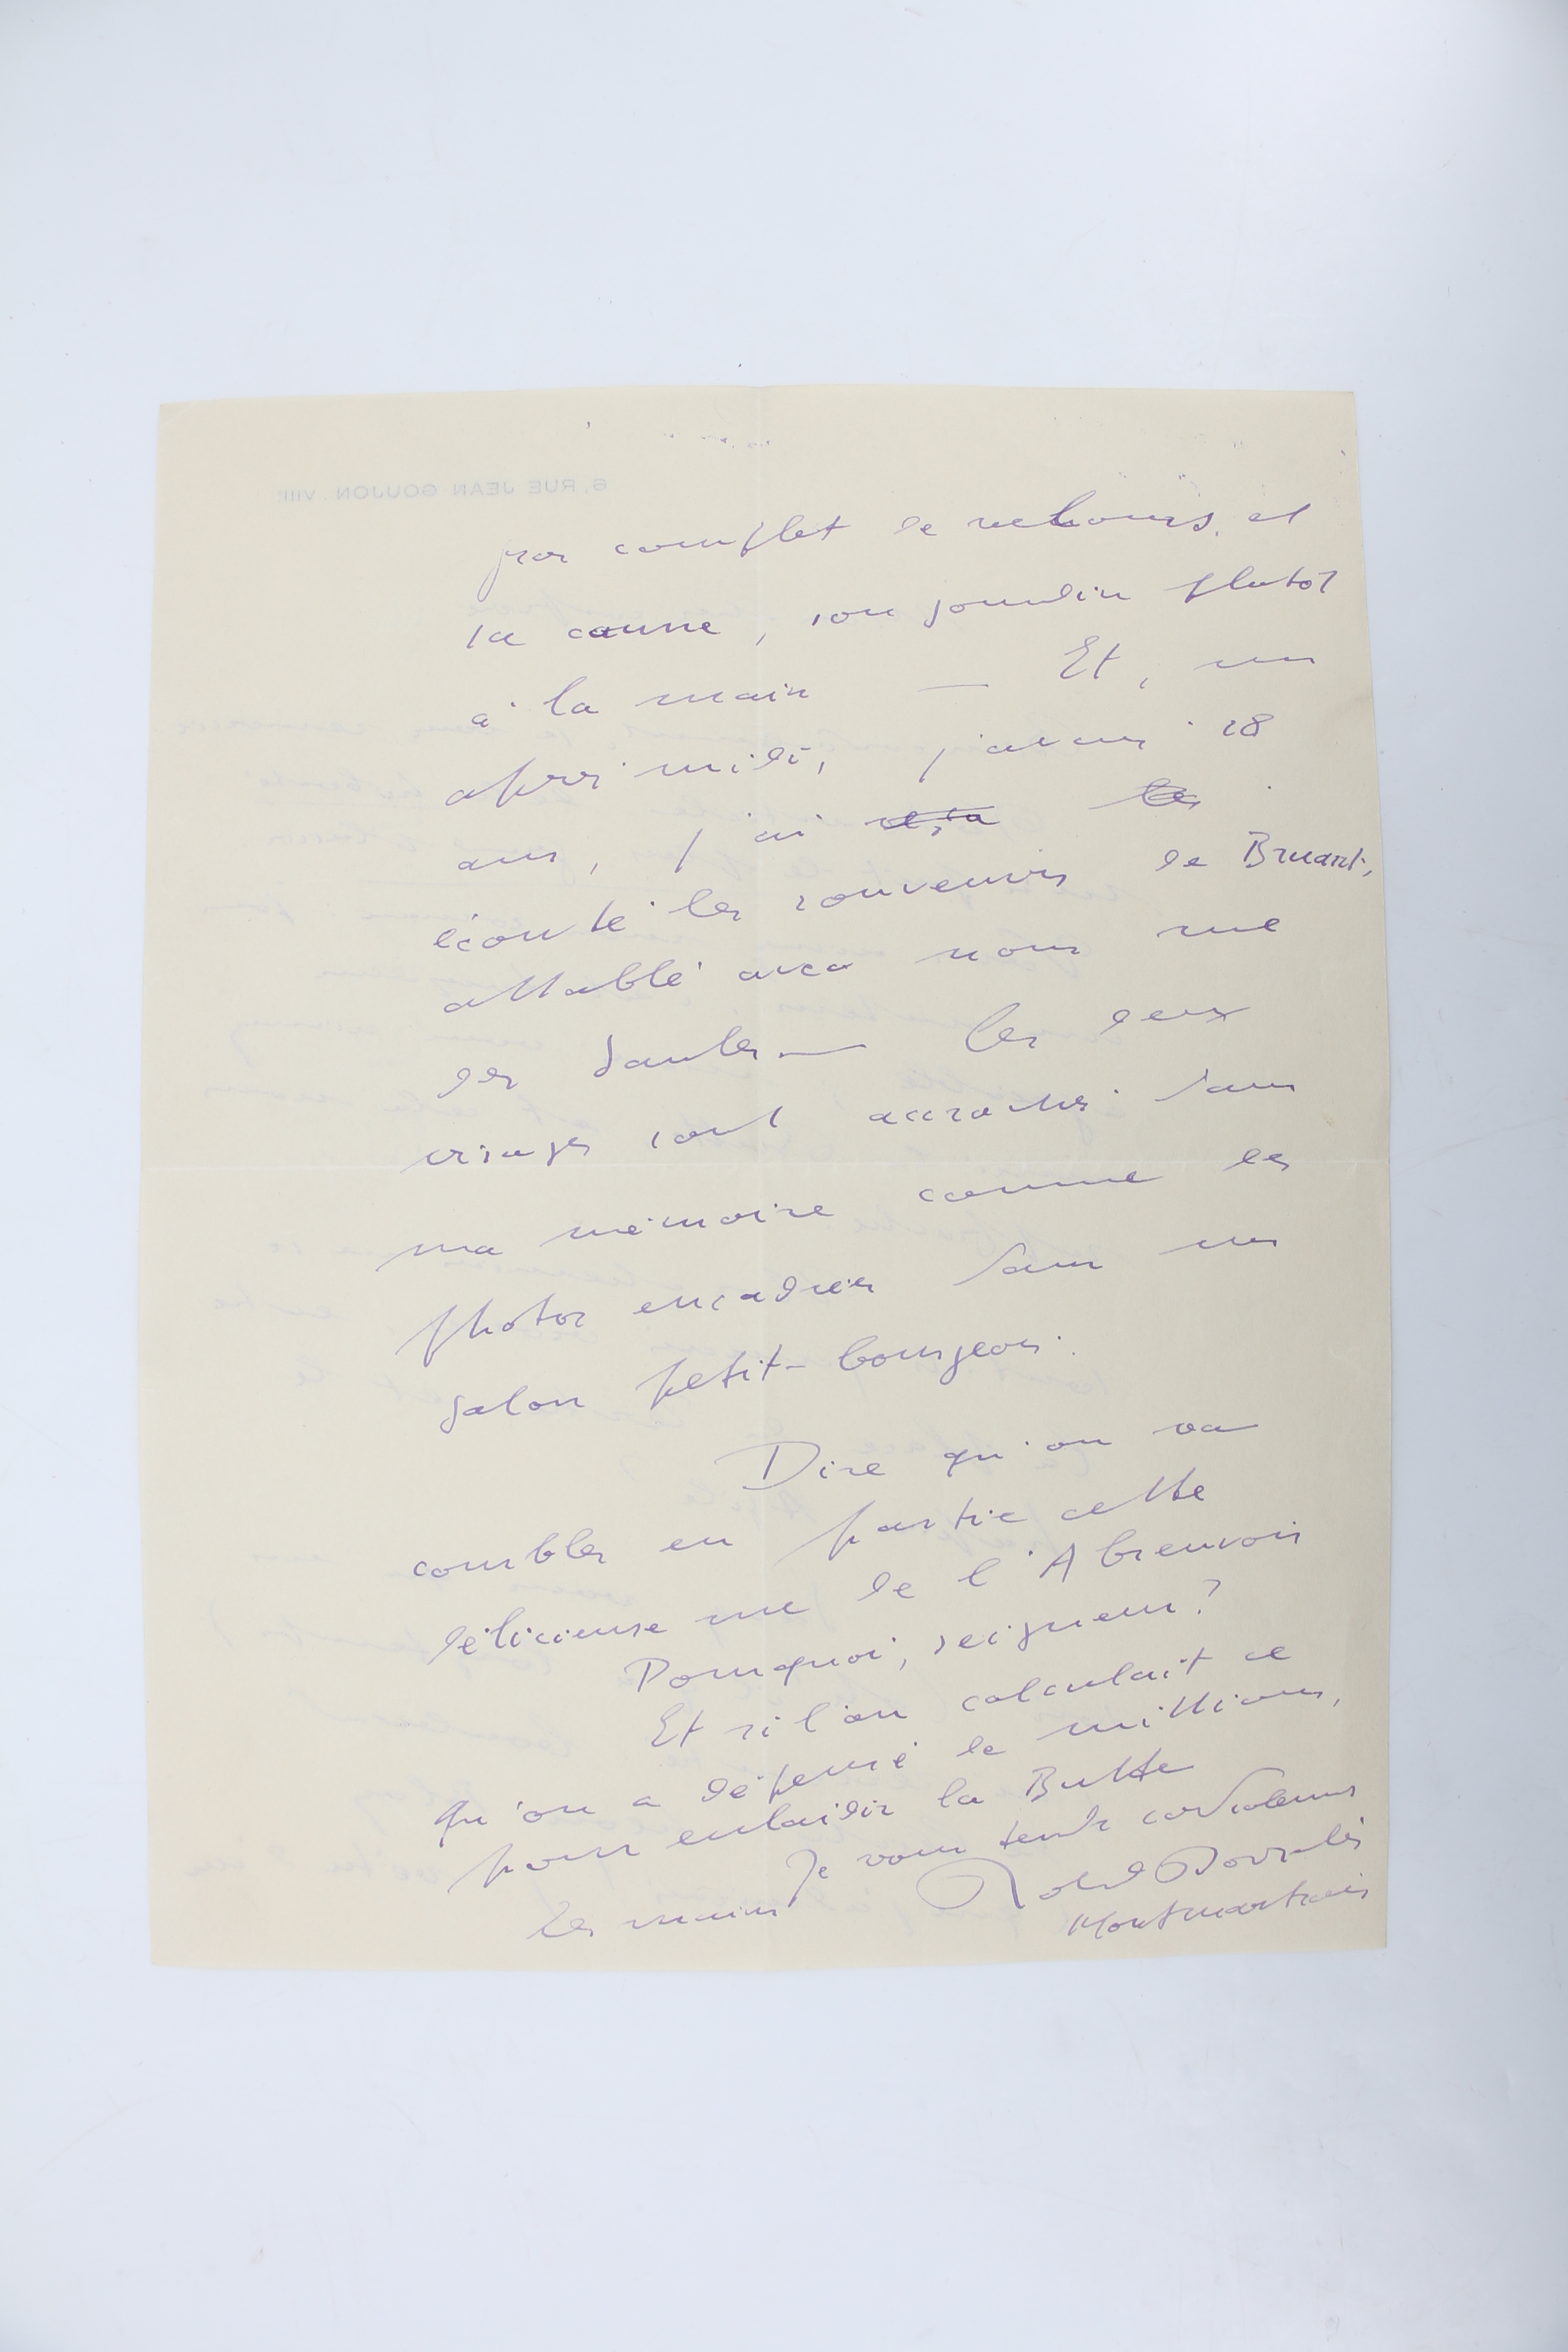 gros complet de velours, et
sa canne, son gourdin plutôt
à la main — Et, un
après midi, j'avais 18
ans, j'ai
écouté les souvenirs de Bruant,
attablé avec nous rue
des Saules — Les deux
visages sont accrochés dans
ma mémoire comme des
photos encadrées dans un
salon petit-bourgeois.
Dire qu'on va
combler en partie cette
délicieuse rue de l'Abreuvoir
Pourquoi, seigneur?
Et si l'on calculait ce
qu'on a dépensé de millions,
pour enlaidir la Butte
Je vous tends cordialement
les mains
Roland Dorgelès
Montmartrois
6, RUE JEAN GOUJON. VIIIe